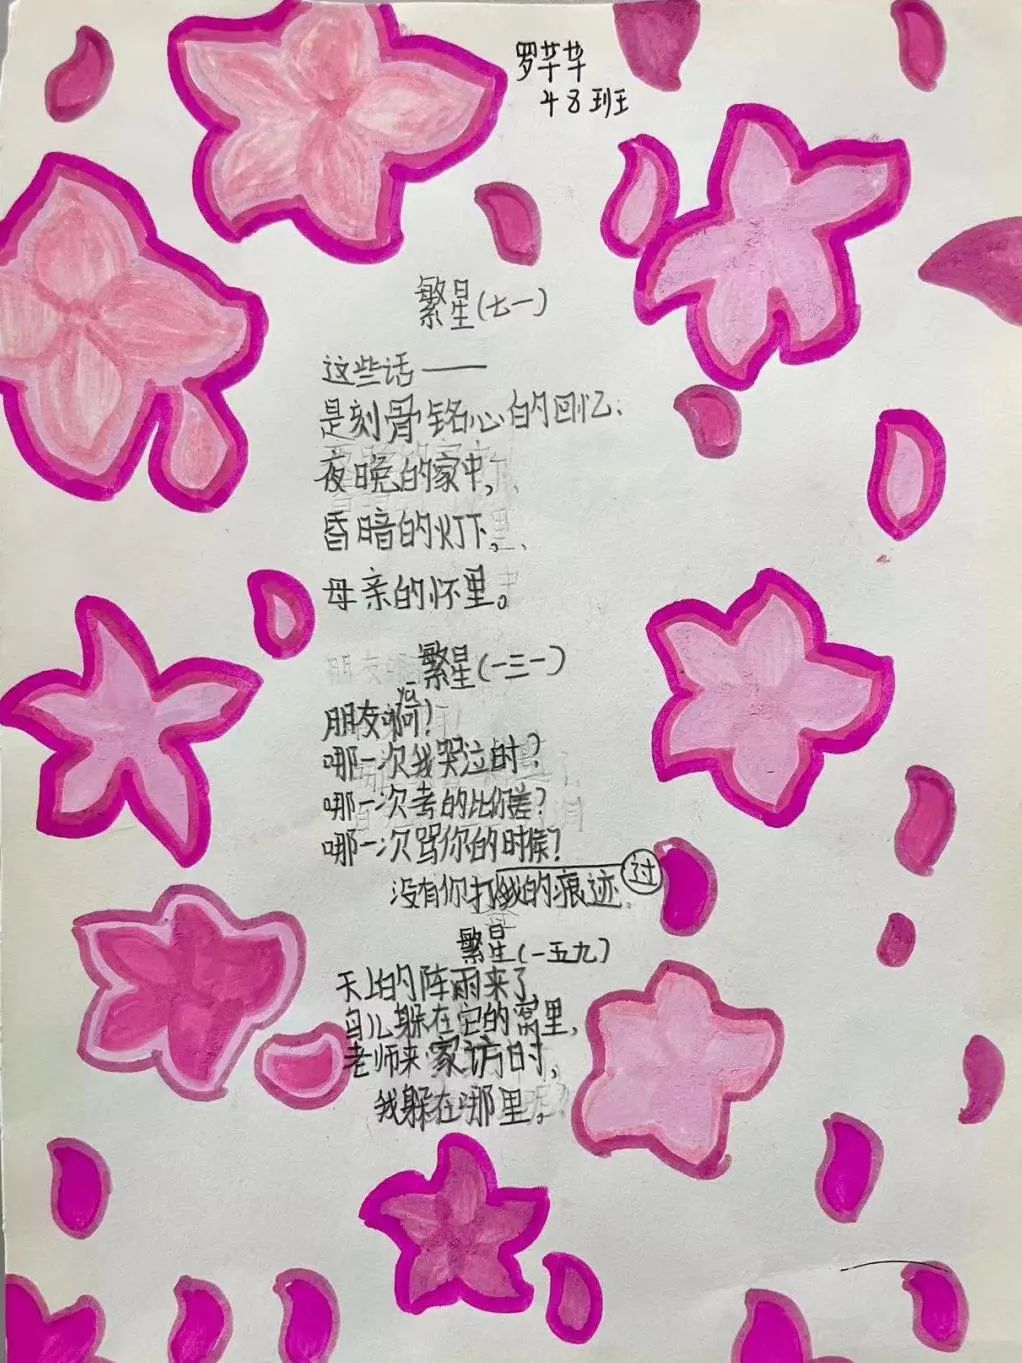 罗芊芊
48班
繁星(七一)
这些话——
是刻骨铭心的回忆:
夜晚的家中,
昏暗的灯下,
母亲的怀里。
繁星(一三一)
朋友啊!
哪一次我哭泣时?
哪一次考的比你差?
哪一次骂你的时候?
没有你打我的痕迹.
过
繁星(一五九)
天上的阵雨来了,
鸟儿躲在它的窝里,
老师来家访时,
我躲在哪里。